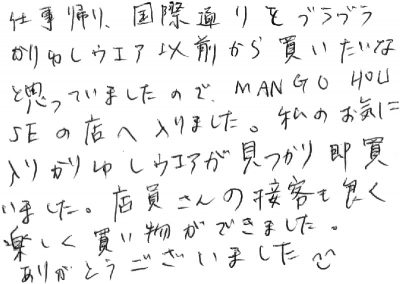 仕事帰り、国際通りをブラブラ
かりゆしウエア以前から買いたいな
と思っていましたので、MANGO HOU
SEの店へ入りました。私のお気に
入りかりゆしウエアが見つかり即買
いました。店員さんの接客も良く
楽しく買い物ができました。
ありがとうございました